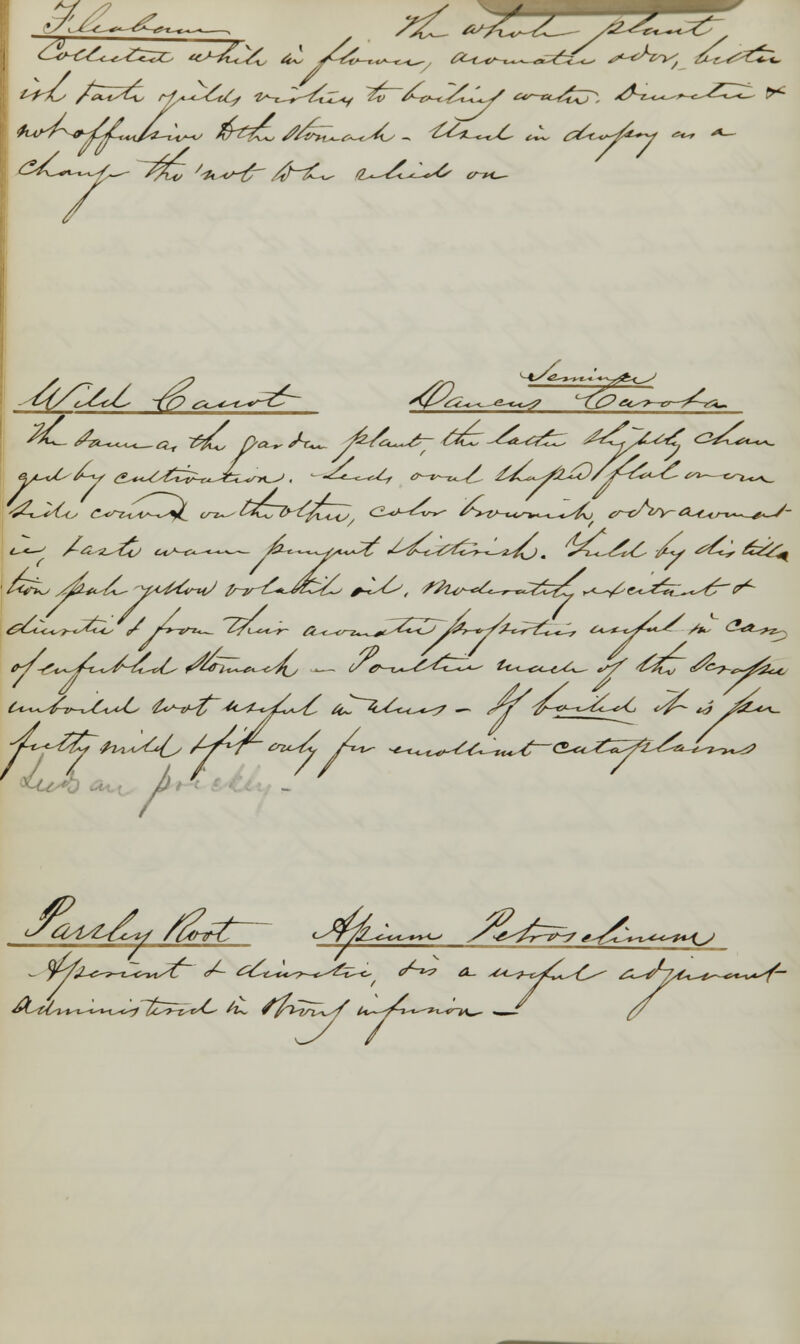 The whole plant
Collected while in flower, aromatic odor, bitter
its taste yields virtues to boiling water. Diuretic &
not offensive to the stomach – Used in dropsy as a
change The root to be relied on
Wild Carrot Daucus Carota Semina
The same as the garden plant, the latter slightly changed
by cultivation. Seeds oval
convex on the other, color brownish odor aromatic
taste warm pungent bitterish. Yields by distillation
pale yellow volatile oil, Moderately excitant &
diuretic & from their aromatic properties useful in cases
of enfeebled stomach — Poultice made of the scraped
root useful in Ulcers – If boiled it is
fitted only for emollient Cataplasms
prickly –
Parsley Root Apium Petroselinum
Aperient & diuretic, & is a useful adjunct
Administered in strong infusion —